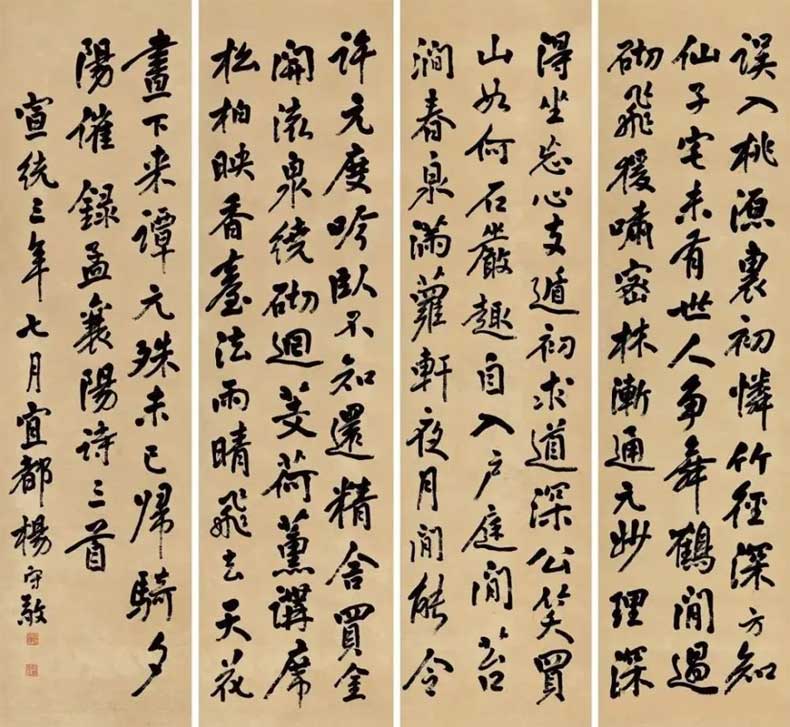 误入桃源裏初憐竹徑深方知
仙子宅未有世人尋舞鶴閒過
砌飛猨嘯密林漸通元妙理深
得坐忘心支遁初求道深公笑買
山如何石巖趣自入戶庭間苔
澗春泉滿蘿軒夜月閒能令
許元度吟臥不知還精舍買金
開流泉繞砌迴芰荷薰講席
松柏映香臺法雨晴飛去天花
晝下来譚元殊未已歸騎夕
陽催 錄孟襄陽诗三首
宣統三年七月宜都楊守敬